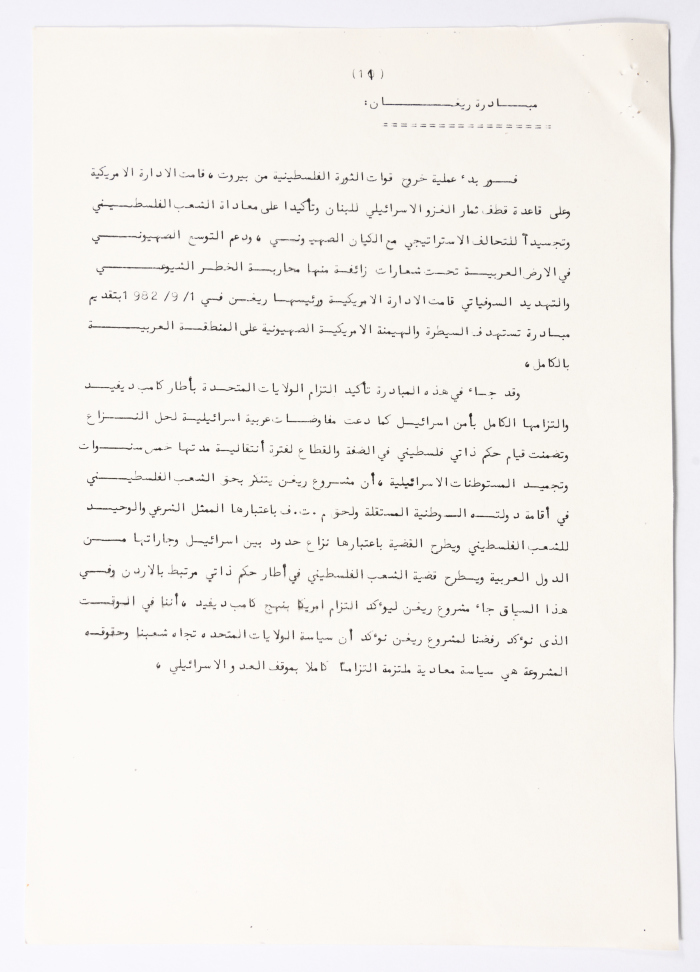 (11)
مبادرة ريغان:
==================
فور بدء عملية خروج قوات الثورة الفلسطينية من بيروت ، قامت الادارة الامريكية
وعلى قاعدة قطف ثمار الغزو الاسرائيلي للبنان وتأكيدا على معاداة الشعب الفلسطيني
وتجسيداً للتحالف الاستراتيجي مع الكيان الصهيوني ، ودعم التوسع الصهيوني
في الارض العربية تحت شعارات زائفة منها محاربة الخطر الشيوعي
والتهديد السوفياتي قامت الادارة الامريكية ورئيسها ريغن في 1/9/1982 بتقديم
مبادرة تستهدف السيطرة والهيمنة الامريكية الصهيونية على المنطقة العربية
بالكامل ،
وقد جاء في هذه المبادرة تأكيد التزام الولايات المتحدة بأطار كامب ديفيد
والتزامها الكامل بأمن اسرائيل كما دعت مفاوضات عربية اسرائيلية لحل النزاع
وتضمنت قيام حكم ذاتي فلسطيني في الضفة والقطاع لفترة أنتقالية مدتها خمس سنوات
وتجميد المستوطنات الاسرائيلية ، أن مشروع ريغن يتنكر بحق الشعب الفلسطيني
في أقامة دولته الوطنية المستقلة ولحق م .ت.ف باعتبارها الممثل الشرعي والوحيد
للشعب الفلسطيني ويطرح القضية باعتبارها نزاع حدود بين اسرائيل وجاراتها من
الدول العربية ويسطرح قضية الشعب الفلسطيني في أطار حكم ذاتي مرتبط بالاردن وفي
هذا السياق جاء مشروع ريغن ليؤكد التزام امريكا بنهج كامب ديفيد ، أننا في الوقت
الذى نؤكد رفضنا لمشروع ريغن نؤكد أن سياسة الولايات المتحده تجاه شعبنا وحقوقه
المشروعة هي سياسة معادية ملتزمة التزاماً كاملا بموقف العدو الاسرائيلي ،